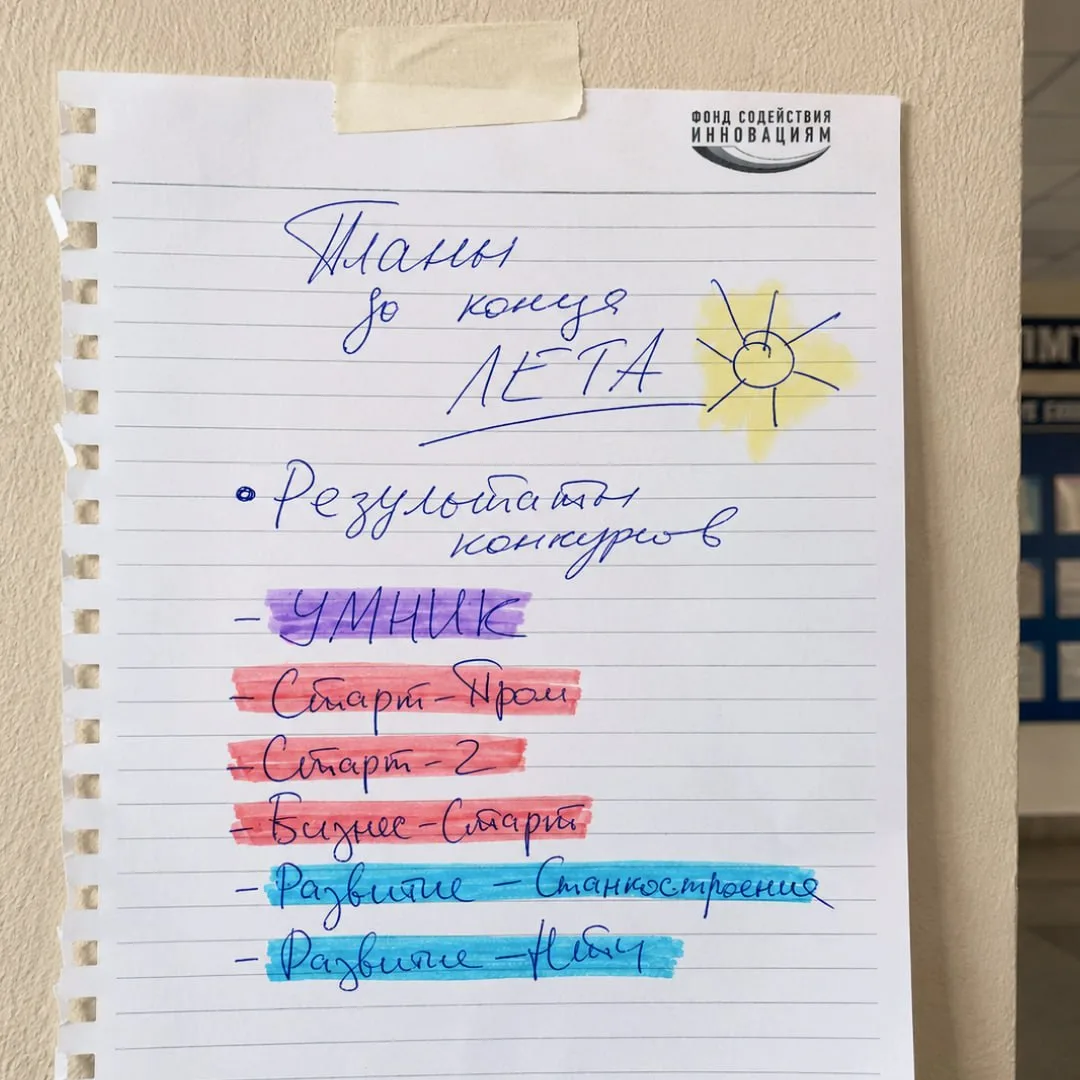 ФОНД СОДЕЙСТВИЯ
ИННОВАЦИЯМ
Планы
до конца
ЛЕТА
• Результаты
конкурсов
- УМНИК
- Старт-Пром
- Старт-2
- Бизнес-Старт
- Развитие - Станкостроение
- Развитие - НТИ